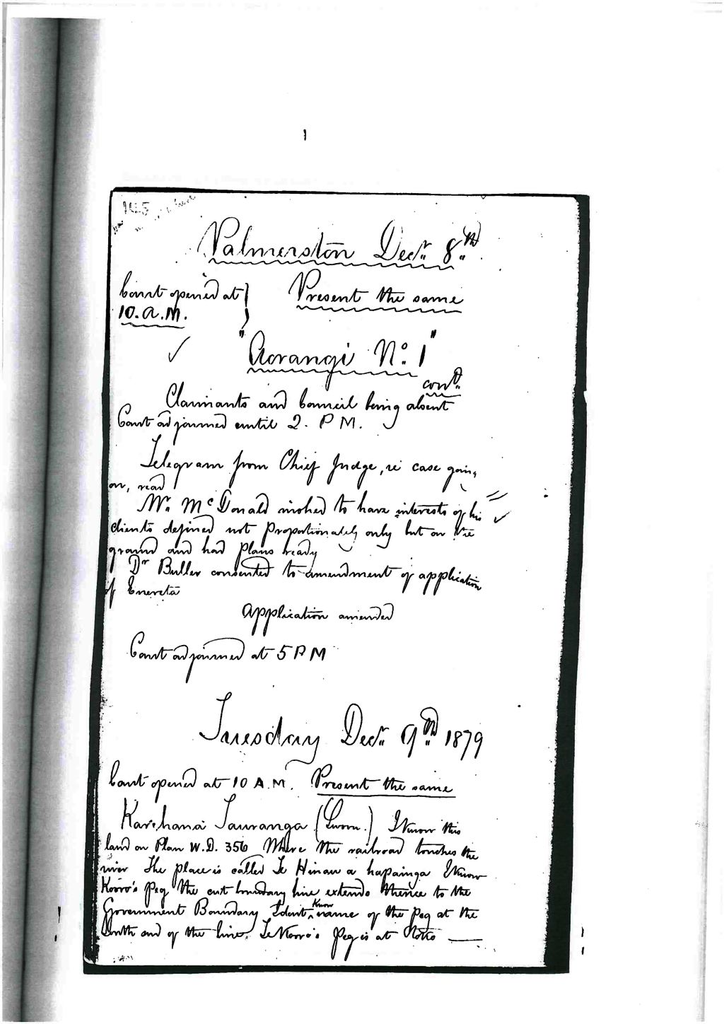 1
165
Palmerston Decr. 8th
Court opened at } Present the same
10. A.M.
"Aorangi No. 1"
contd.
Claimants and Council being absent
Court adjourned until 2. P M.
Telegram from Chief Judge, re case going
on, read
Mr. McDonald wished to have interests of his
clients defined not Proportionately only but on the
ground and had Plans ready
Dr Buller consented to amendment of application
of Enereta
Application amended
Court adjourned at 5 P M
Tuesday Decr. 9th 1879
Court opened at 10 A.M. Present the same
Karehana Tauranga (Sworn.) I know this
land on Plan W.D. 356 Where the railroad touches the
river The place is called Te Hinau a kapainga I know
Korro's Peg The cut boundary line extends thence to the
Government Boundary I dont know name of the Peg at the
end of the line. Te Korro's Peg is at